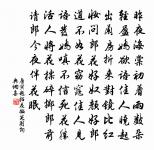 昨夜海棠初着雨數朵
輕盈嬌欲語佳人曉起
出蘭房折來對鏡比紅
妝問郎花好奴顏好郎
道不如花窈窕佳人見
語發嬌嗔不信死花勝
活人將花揉碎擲郎前
請郎今夜伴花眠